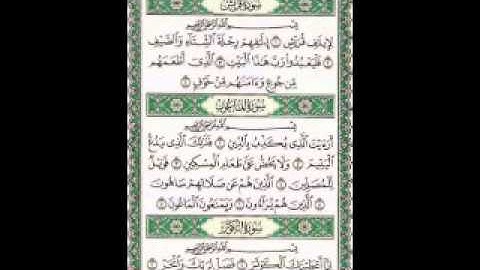 سُورَةُ قُرَيْشٍ
بِسْمِ ٱللَّهِ ٱلرَّحْمَٰنِ ٱلرَّحِيمِ
لِإِيلَٰفِ قُرَيْشٍ ۝١ إِۦلَٰفِهِمْ رِحْلَةَ ٱلشِّتَآءِ وَٱلصَّيْفِ
۝٢ فَلْيَعْبُدُوا۟ رَبَّ هَٰذَا ٱلْبَيْتِ ۝٣ ٱلَّذِىٓ أَطْعَمَهُم
مِّن جُوعٍ وَءَامَنَهُم مِّنْ خَوْفٍۭ ۝٤
سُورَةُ ٱلْمَاعُونِ
بِسْمِ ٱللَّهِ ٱلرَّحْمَٰنِ ٱلرَّحِيمِ
أَرَءَيْتَ ٱلَّذِى يُكَذِّبُ بِٱلدِّينِ ۝١ فَذَٰلِكَ ٱلَّذِى يَدُعُّ
ٱلْيَتِيمَ ۝٢ وَلَا يَحُضُّ عَلَىٰ طَعَامِ ٱلْمِسْكِينِ ۝٣ فَوَيْلٌ
لِّلْمُصَلِّينَ ۝٤ ٱلَّذِينَ هُمْ عَن صَلَاتِهِمْ سَاهُونَ
۝٥ ٱلَّذِينَ هُمْ يُرَآءُونَ ۝٦ وَيَمْنَعُونَ ٱلْمَاعُونَ ۝٧
سُورَةُ ٱلْكَوْثَرِ
بِسْمِ ٱللَّهِ ٱلرَّحْمَٰنِ ٱلرَّحِيمِ
إِنَّآ أَعْطَيْنَٰكَ ٱلْكَوْثَرَ ۝١ فَصَلِّ لِرَبِّكَ وَٱنْحَرْ ۝٢